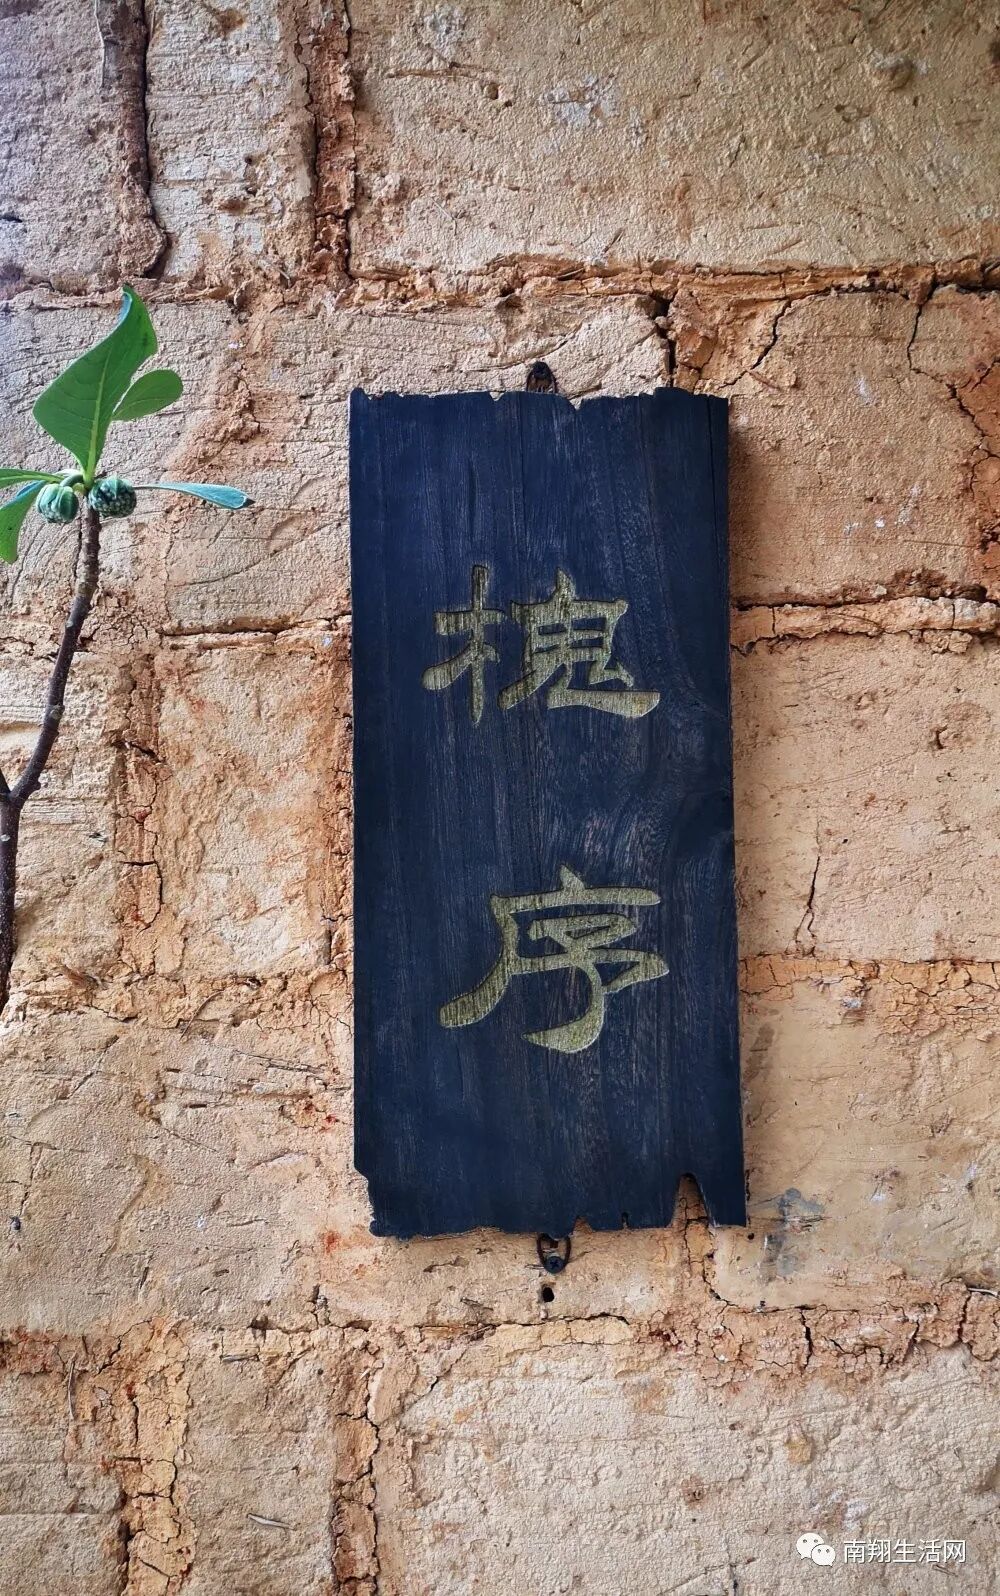 槐
序
南翔生活网